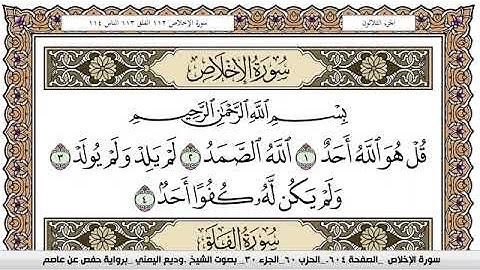 الجزء الثلاثون
سورة الإخلاص ١١٢ الفلق ١١٣ الناس ١١٤
سُورَةُ الإِخْلَاصِ
بِسْمِ اللَّهِ الرَّحْمَٰنِ الرَّحِيمِ
قُلْ هُوَ اللَّهُ أَحَدٌ ١ اللَّهُ الصَّمَدُ ٢ لَمْ يَلِدْ وَلَمْ يُولَدْ ٣
وَلَمْ يَكُن لَّهُۥ كُفُوًا أَحَدٌۢ ٤
سُورَةُ الفَلَقِ
سورة الإخلاص _الصفحة ٦٠٤_ الحزب ٦٠_الجزء ٣٠_ بصوت الشيخ .وديع اليمني _برواية حفص عن عاصم